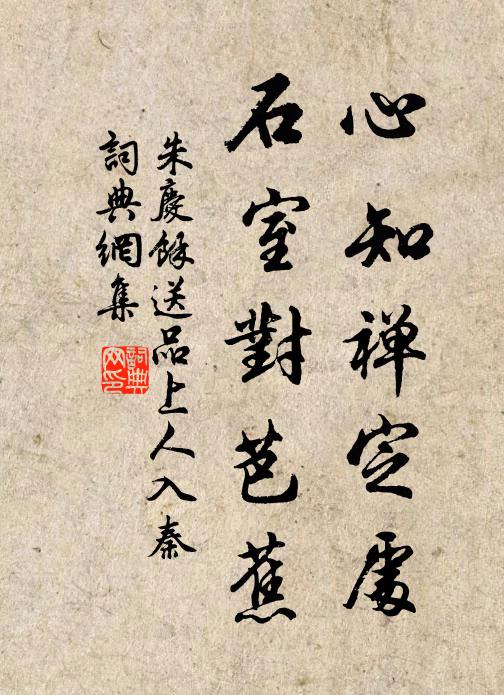 心知禅定處
石室對芭蕉
朱慶餘送品上人入秦
詞典網集
詞典网印